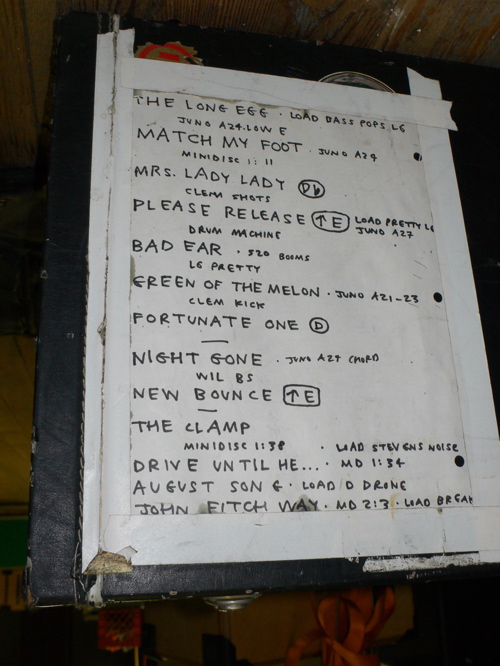 THE LONG EGG · LOAD BASS POPS LG
JUNO A24.LOW E
MATCH MY FOOT · JUNO A24
MINIDISC 1: 11
MRS. LADY LADY Db
CLEM SHOTS
PLEASE RELEASE ↑E LOAD PRETTY LG
DRUM MACHINE JUNO A27
BAD EAR · 520 BOOMS
LG PRETTY
GREEN OF THE MELON · JUNO A21-23
CLEM KICK
FORTUNATE ONE D
NIGHT GONE · JUNO A27 CHORD
WIL BS
NEW BOUNCE ↑E
THE CLAMP
MINIDISC 1:38 · LOAD STEVENS NOISE
DRIVE UNTIL HE... · MD 1:34
AUGUST SONG · LOAD D DRONE
JOHN FITCH WAY · MD 2:3 · LOAD BREAK